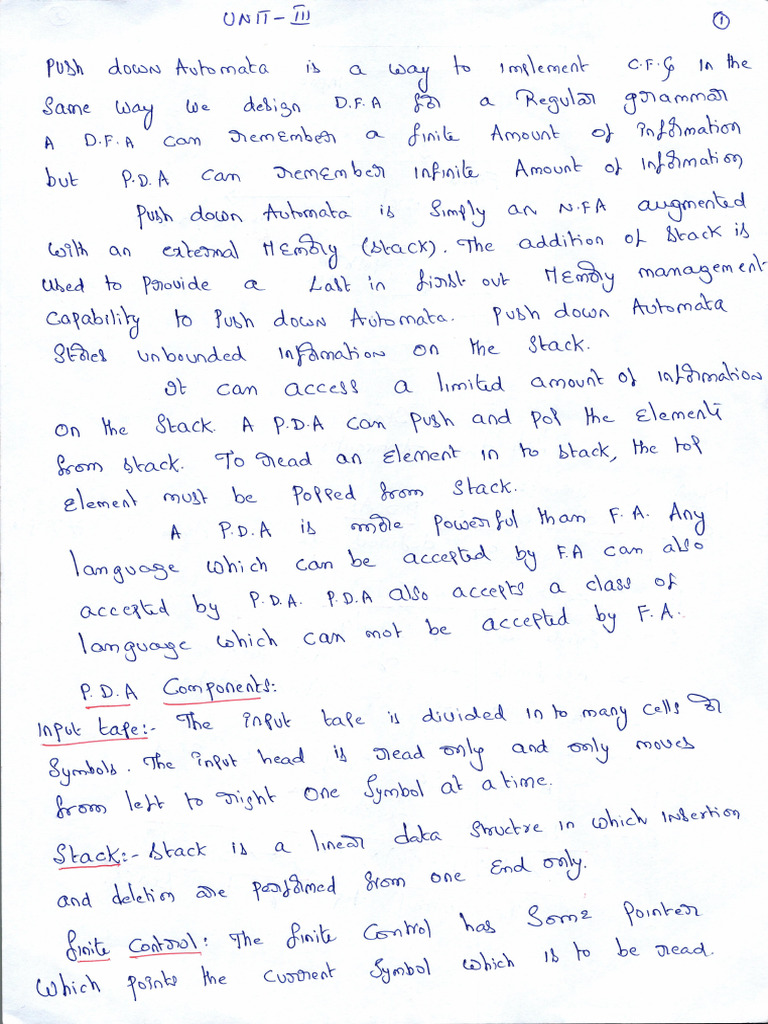 UNIT - III
1
Push down Automata is a way to implement C.F.G in the
Same way we design D.F.A for a Regular grammar
A D.F.A can remember a finite Amount of information
but P.D.A can remember infinite Amount of information
Push down Automata is Simply an N.FA augmented
with an external Memory (stack). The addition of Stack is
used to provide a Last in first out Memory management
Capability to Push down Automata. Push down Automata
Stores unbounded information on the Stack.
It can access a limited amount of information
on the Stack. A P.D.A can push and pop the Elements
from stack. To read an element in to stack, the top
element must be popped from Stack.
A P.D.A is more powerful than F.A. Any
language which can be accepted by F.A can also
accepted by P.D.A. P.D.A also accepts a class of
language which can not be accepted by F.A.
P.D.A Components:
Input tape:- The input tape is divided in to many cells or
Symbols. The input head is read only and only moves
from left to right one Symbol at a time.
Stack:- Stack is a linear data structre in which insertion
and deletion are performed from one End only.
finite Control: The finite Control has Some pointer
which points the current Symbol which is to be read.